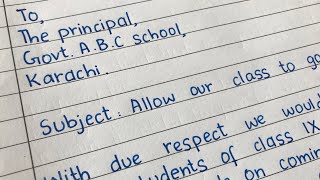 To,
The principal,
Govt. A.B.C school,
Karachi.
Subject: Allow our class to go
With due respect we would
students of class IX
on comin